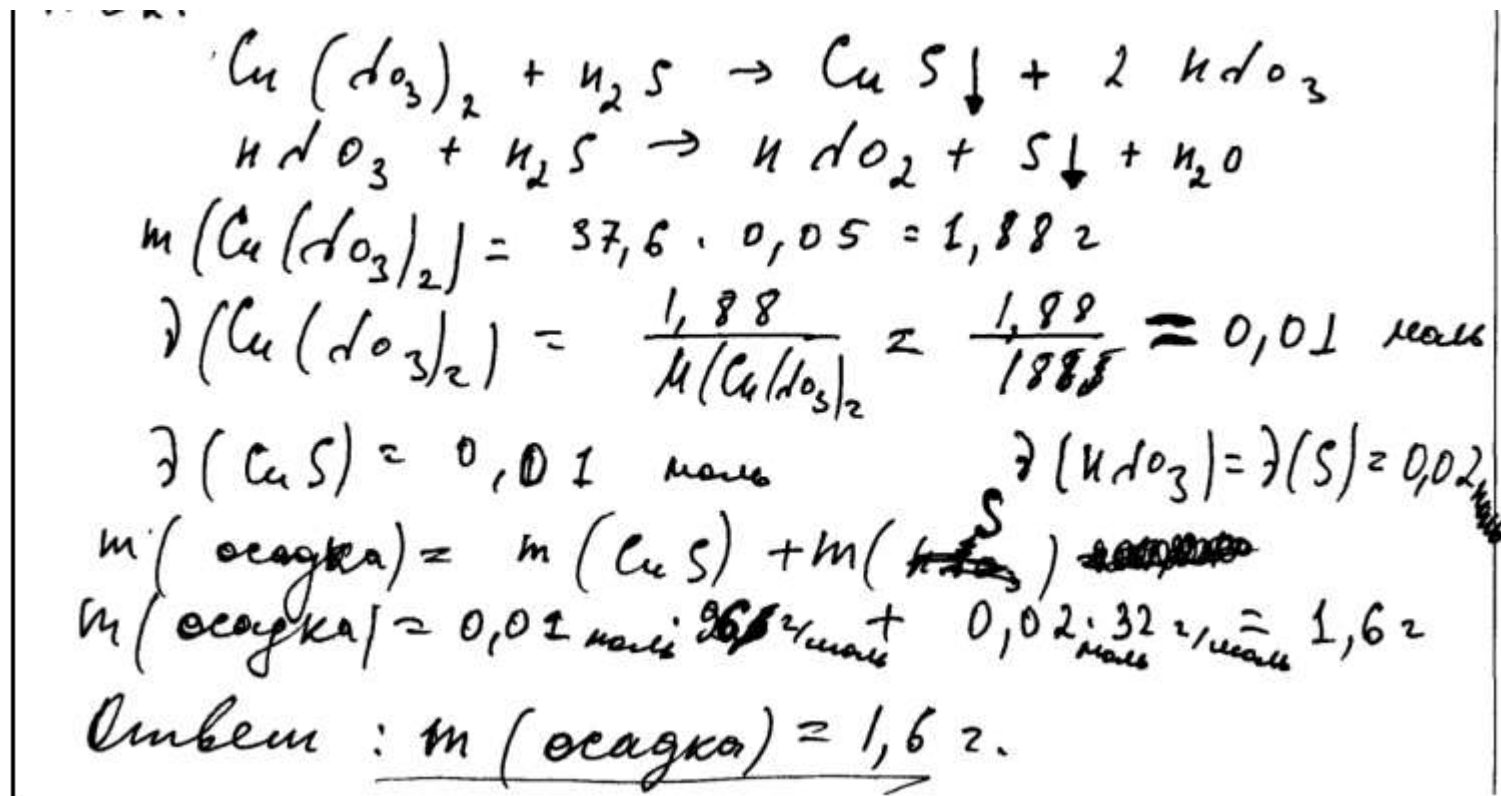 Cu(NO₃)₂ + H₂S → CuS↓ + 2 HNO₃
HNO₃ + H₂S → HNO₂ + S↓ + H₂O
m(Cu(NO₃)₂) = 37,6 · 0,05 = 1,88 г
ν(Cu(NO₃)₂) = 1,88 / M(Cu(NO₃)₂ = 1,88 / 188 = 0,01 моль
ν(CuS) = 0,01 моль ν(HNO₃) = ν(S) = 0,02 моль
m(осадка) = m(CuS) + m(S)
m(осадка) = 0,01 моль · 96 г/моль + 0,02 моль · 32 г/моль = 1,6 г
Ответ : m(осадка) = 1,6 г.